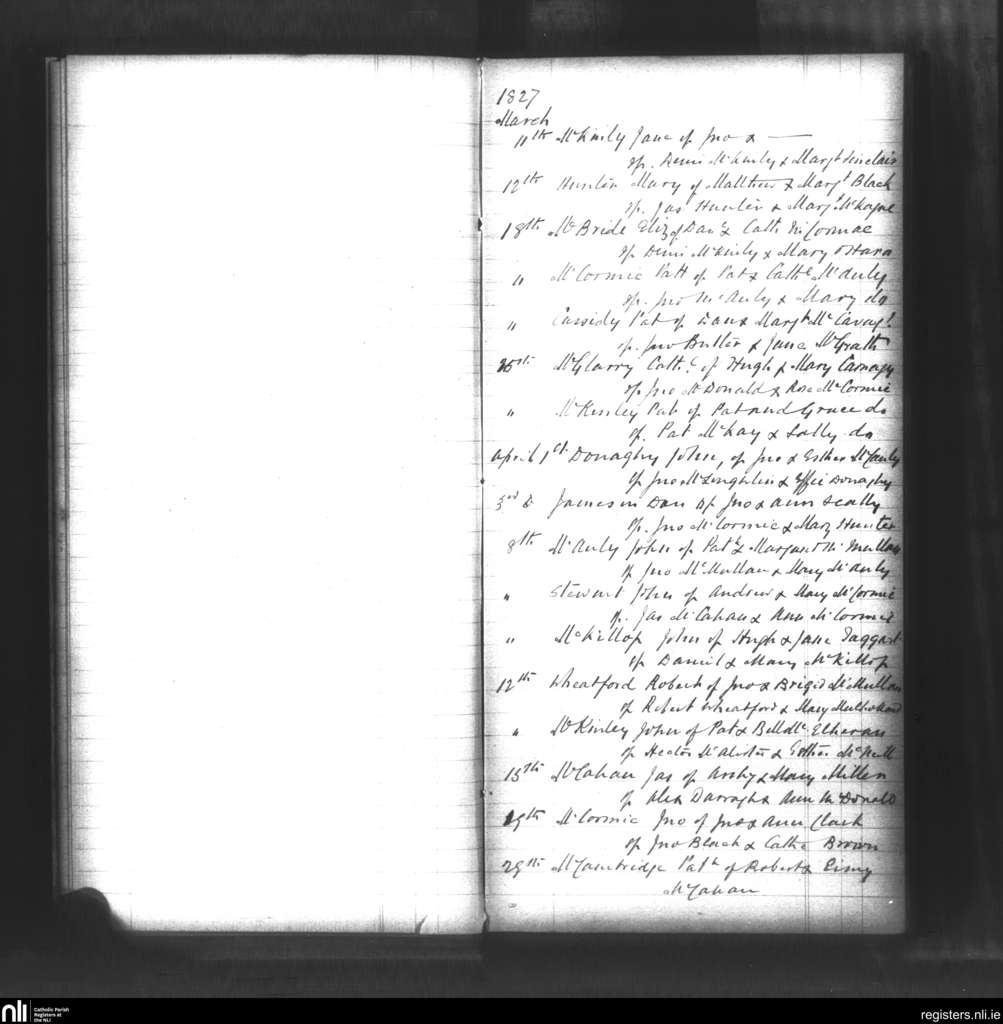 1827
March
11th McKinly Jane of Jno &
sp. Denis McKinly & Margt Sinclair
12th Hunter Mary of Matthew & Margt Black
sp. Jas Hunter & Margt McKague
18th McBride Eliz of Danl & Cath McCormac
sp Denis McKinly & Mary OHara
" McCormic Patt of Pat & Cathe McAuly
sp. Jno McAuly & Mary do
" Cassidy Pat of Dan & Margt McCavagt
sp. Jno Butler & Jane McGrath
25th McGlarry Cathe of Hugh & Mary Carnagy
sp Jno McDonald & Rose McCormic
" McKinley Pat of Pat and Grace do
sp. Pat McKay & Sally do
April 1st Donaghy John, of Jno & Esther McCauly
sp Jno McLoughlin & Effie Donaghy
3rd D Jameson Dan of Jno & Ann Scally
sp. Jno McCormic & Mary Hunter
8th McAuly John of Patk & Margaret McMullan
sp Jno McMullan & Mary McAuly
" Stewart John of Andrew & Mary McCormic
sp. Jas McCahan & Ann McCormic
" McKillop John of Hugh & Jane Taggart
sp Daniel & Mary McKillop
12th Wheatford Robert of Jno & Brigid McMullan
sp Robert Wheatford & Mary Mulholland
" McKinley John of Pat & Bell Mc Elheran
sp Hector McAlister & Esther McNeill
15th McCahan Jas of Archy & Mary Miller
sp Alex Darragh & Ann McDonald
19th McCormic Jno of Jno & Ann Clark
sp Jno Black & Cathe Brown
29th McCambridge Patk of Robert &
McCahan
nli
Catholic Parish
Registers at
the NLI
registers.nli.ie